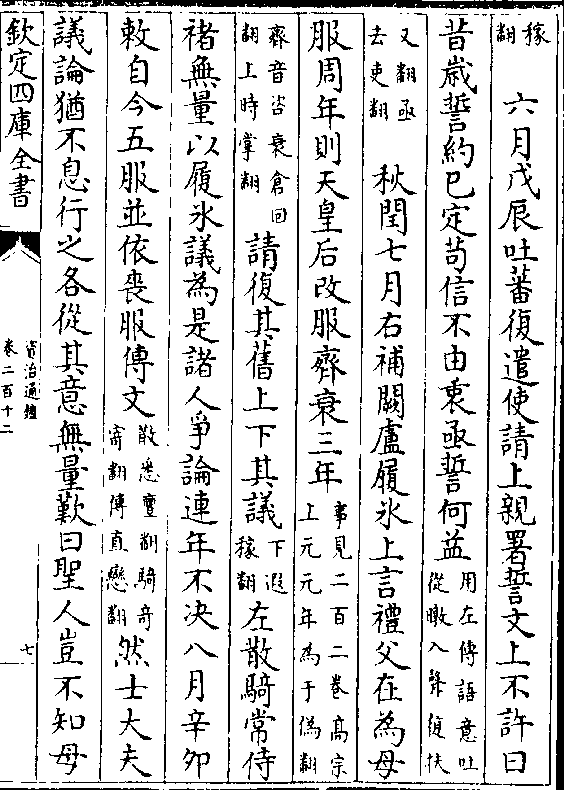 稼翻　六月戊辰吐蕃復遣使請上親署誓文上不許曰
昔歲誓約已定苟信不由衷亟誓何益用左傳語意吐從暾入聲復扶
又翻亟去吏翻　秋閏七月右補闕盧履氷上言禮父在為母
服周年則天皇后改服齊衰三年事見二百二卷高宗上元元年為于偽翻
齊音咨衰倉回翻上時掌翻請復其舊上下其議下遐稼翻左散騎常侍
褚無量以履氷議為是諸人爭論連年不決八月辛卯
敕自今五服並依喪服傳文散悉亶翻騎奇寄翻傳直戀翻然士大夫
議論猶不息行之各從其意無量歎曰聖人豈不知母
欽定四庫全書
資治通鑑
卷二百十二
七